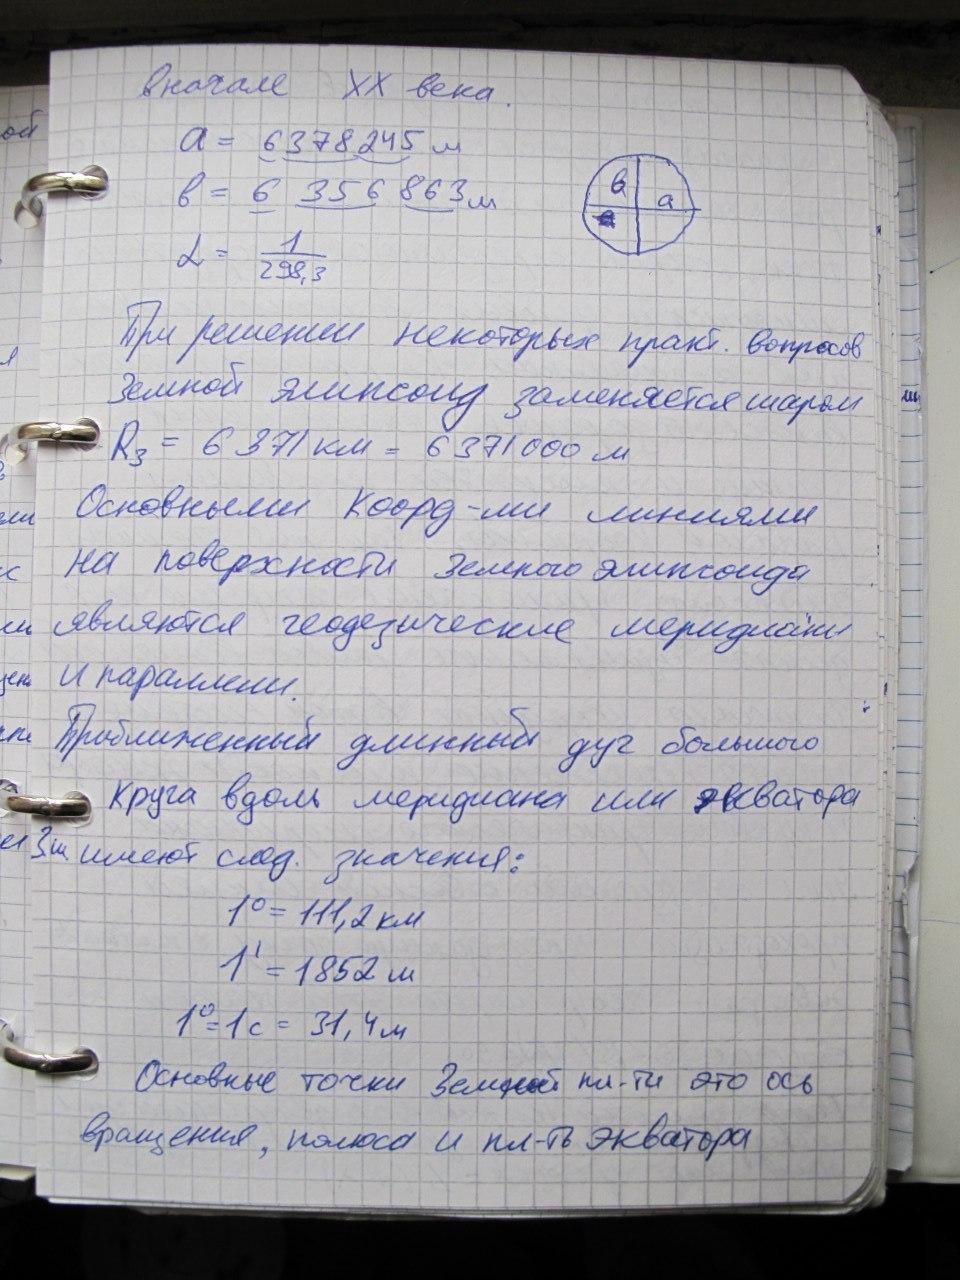 вначале XX века.
a = 6378245 м
в = 6 356 863 м
в
a
L = 1/298,3
При решении некоторых практ. вопросов
Земной элипсоид заменяется шаром
R₃ = 6 371 км = 6 371 000 м
Основными коорд-ми линиями
на поверхности Земного элипсоида
являются геодезические меридианы
и параллели.
Приближенный длинный дуг большого
круга вдоль меридиана или экватора
имеют след. значения:
1° = 111,2 км
1' = 1852 м
1° = 1с = 31,4 м
Основные точки Земной пл-ти это ось
вращения, полюса и пл-ть экватора